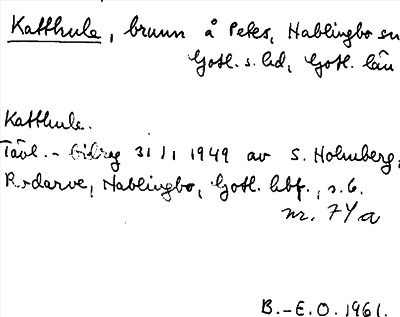 Katthula, brunn å Petes, Hablingbo sn
Gotl. s. hd, Gotl. län
Katthula.
Tävl.-bidrag 31/1 1949 av S. Holmberg,
Rodarve, Hablingbo, Gotl. hbf., s. 6.
nr. 74 a
B.-E.O. 1961.